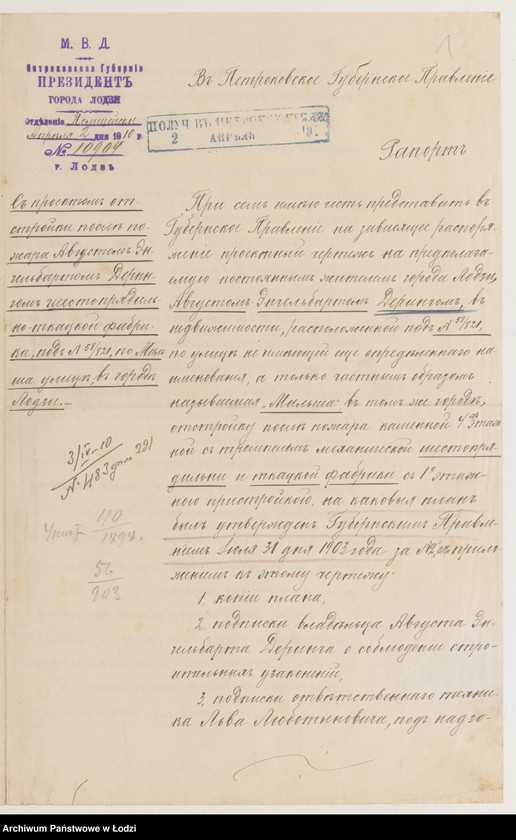 М. В. Д.
Петроковская Губернія
ПРЕЗИДЕНТЪ
ГОРОДА ЛОДЗИ
Отдѣленіе Полицейск.
Апрѣля 2 дня 1910 г.
№ 10904
г. Лодзь
Въ Петроковское Губернское Правленіе
ПОЛУЧ. ВЪ ПЕТРОКОВ.
2 АПРѢЛЯ
Рапортъ
Съ проэктомъ от-
стройки послѣ по-
жара Августомъ Эн-
гельбартомъ Дерин-
гомъ шестопрядиль-
но-ткацкой фабри-
ки, подъ № 58/821, по Миль-
ша улицѣ, въ городѣ
Лодзи.—
3/IV-10
№ 1183 дѣл 291
110
1894.
56
903
При семъ имѣю честь представить въ
Губернское Правленіе на зависящее распоря-
женіе проэктный чертежъ на предполага-
емую постояннымъ жителемъ города Лодзи,
Августомъ Энгельбартомъ Дерингомъ, въ
недвижимости, расположенной подъ № 58/821,
по улицѣ не имѣющей еще опредѣленнаго на-
именованія, а только частнымъ образомъ
называемая „Мильша“, въ томъ же городѣ,
отстройку послѣ пожара каменной 4хъ этаж-
ной съ механической шестопря-
дильни и ткацкой фабрики съ 1о этаж-
ного пристройкого, на каковыя планъ
былъ утвержденъ Губернскимъ Правле-
ніемъ Іюля 31 дня 1903 года за №, съ прило-
женіемъ къ этому чертежу:
1, копіи плана,
2, подписки владѣльца Августа Эн-
гельбарта Деринга о соблюденіи стро-
ительныхъ узаконеній,
3, подписки отвѣтственнаго техни-
ка Льва Люботыновича, подъ надзо-
Archiwum Państwowe w Łodzi